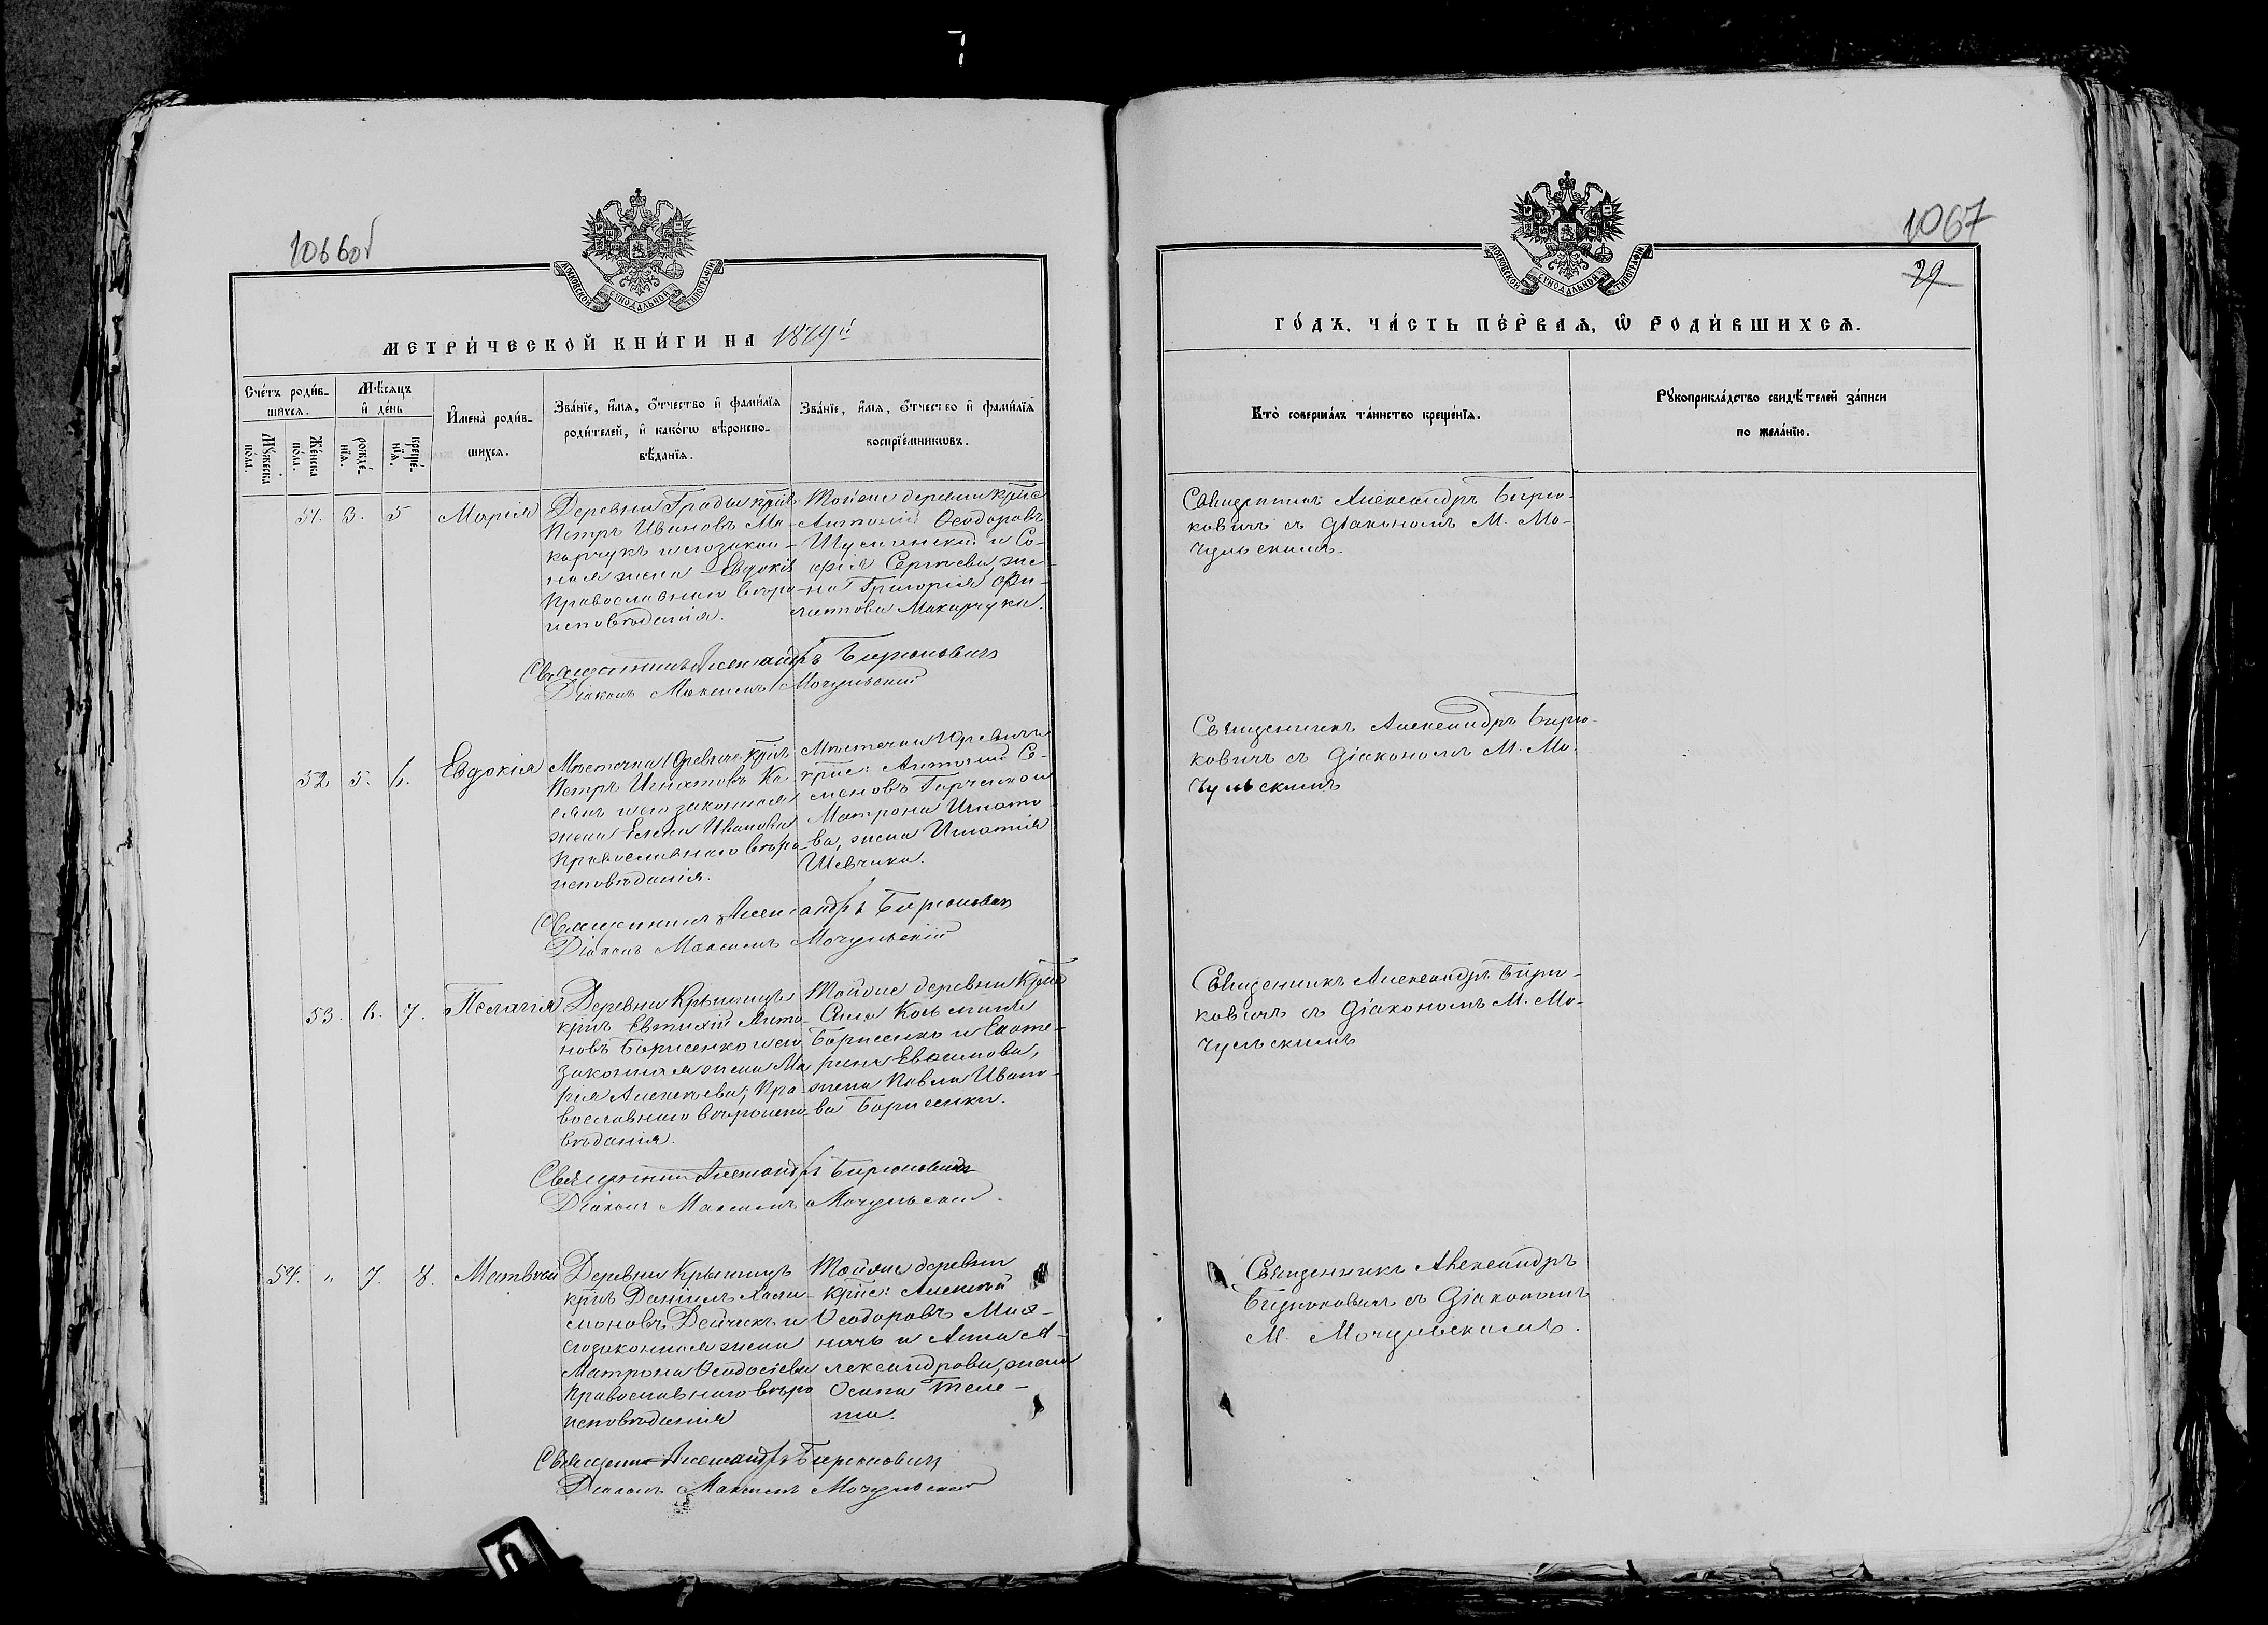 1066об
МОСКОВСКОЙ СѴНОДАЛЬНОЙ ТИПОГРАФІИ
МЕТРИ́ЧЕСКОЙ КНИ́ГИ НА 1879й
Сче́тъ роди́в-
шихся.
Мѣ́сяцъ
и҆ де́нь
И҆мена̀ роди́в-
шихся.
Зва́нїе, и҆́мя, ѻ҆́тчество и҆ фами́лїя
роди́телей, и҆ како́гѡ вѣроиспо-
вѣ́данїя.
Зва́нїе, и҆́мя, ѻ҆́тчество и҆ фами́лїя
воспрїе́мникѡвъ.
Мꙋ́жеска
по́ла.
Же́нска
по́ла.
рожде́-
нїя.
креще́-
нїя.
51. 3. 5 Марія
Деревни Грады крѣс.
Петръ Ивановъ Ма-
карчукъ и его закон-
ная жена Евдокія
Православнаго вѣро-
исповѣданія.
Тойже деревни крѣс
Антоній Ѳеодоровъ
и Со-
фія Сергѣева, же-
на Григорія Фи-
Макарчука.
Священникъ Александръ Бирюковичъ
Діаконъ Максимъ Мочульскій
52. 5. 6. Евдокія
Мѣстечка Юревичъ крѣс.
Петръ Игнатовъ
и его законная
жена Елена Иванова
Православнаго вѣро-
исповѣданія.
Мѣстечка Юревичъ
крѣс: Антоній Се-
меновъ и
Матрона Игнато-
ва, жена Игнатія
Шевчика.
Священникъ Александръ Бирюковичъ
Діаконъ Максимъ Мочульскій
53. 6. 7. Пелагія
Деревни Крышичъ
крѣс Евтихій Анто-
новъ Борисенко и его
законная жена Ма-
рія Алексѣева, Пра-
вославнаго вѣроиспо-
вѣданія.
Тойже деревни крѣс
Борисенко и Екате-
рина Евфимова,
жена Павла Ивано-
ва Борисенки.
Священникъ Александръ Бирюковичъ
Діаконъ Максимъ Мочульскій.
54. " 7. 8. Матвѣй
Деревни Крышичъ
крѣс Даніилъ Хари-
моновъ Дейчикъ и
его законная жена
Матрона Ѳеодосіева
Православнаго вѣро
исповѣданія
Тойже деревни
крѣс: Алексѣй
Ѳеодоровъ
и Анна А-
лександрова, жена
Осипа
Священникъ Александръ Бирюковичъ
Діаконъ Максимъ Мочульскій
1067
29
МОСКОВСКОЙ СѴНОДАЛЬНОЙ ТИПОГРАФІИ
ГО́ДЪ. ЧА́СТЬ ПЕ́РВАЯ, Ѡ҆ РОДИ́ВШИХСЯ.
Кто̀ соверша́лъ та́инство креще́нїя.
Рꙋкоприкла́дство свидѣ́телей за́писи
по жела́нїю.
Священникъ Александръ Бирю-
ковичъ съ діакономъ М. Мо-
чульскимъ.
Священникъ Александръ Бирю-
ковичъ съ діакономъ М. Мо-
чульскимъ
Священникъ Александръ Бирю-
ковичъ съ діакономъ М. Мо-
чульскимъ
Священникъ Александръ
Бирюковичъ съ діакономъ
М. Мочульскимъ.